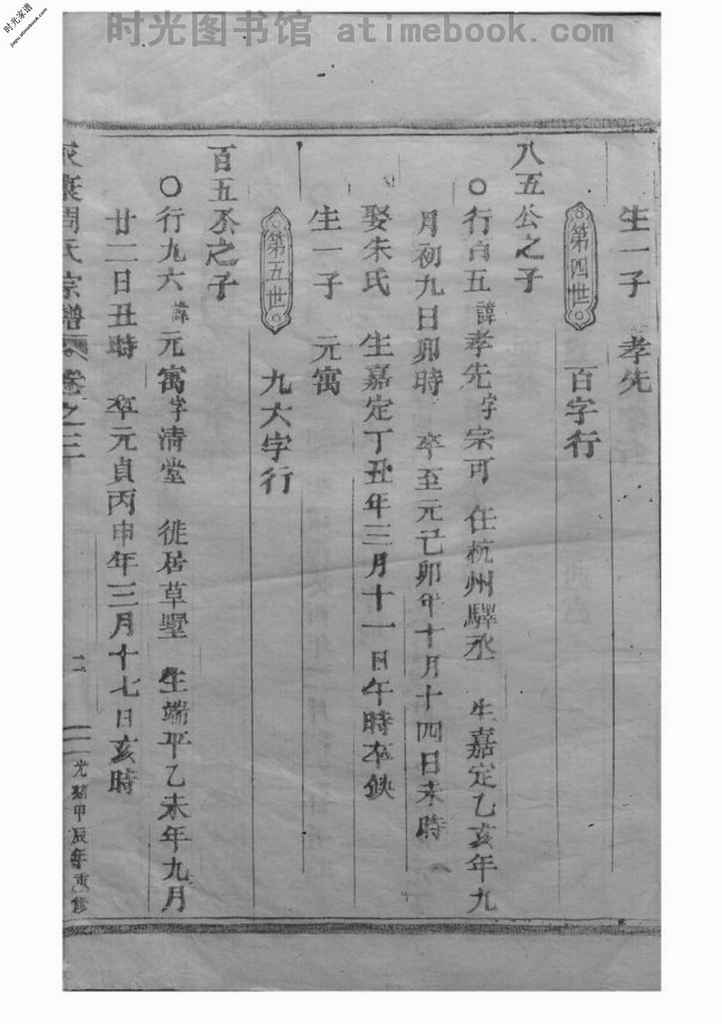 时光图书馆 atimebook.com
时光家谱
jiapu.atimebook.com
生一子 孝先
第四世 百字行
八五公之子
○行百五諱孝先字宗可 任杭州驛丞 生嘉定乙亥年九
月初九日卯時 卒至元己卯年十月十四日未時
娶朱氏 生嘉定丁丑年三月十一日午時卒缺
生一子 元寓
第五世 九六字行
百五丞之子
○行九六諱元寓字清堂 徙居草墅 生端平乙未年九月
廿二日丑時 卒元貞丙申年三月十七日亥時
周氏宗譜 卷之三 二 光緒甲辰年重修